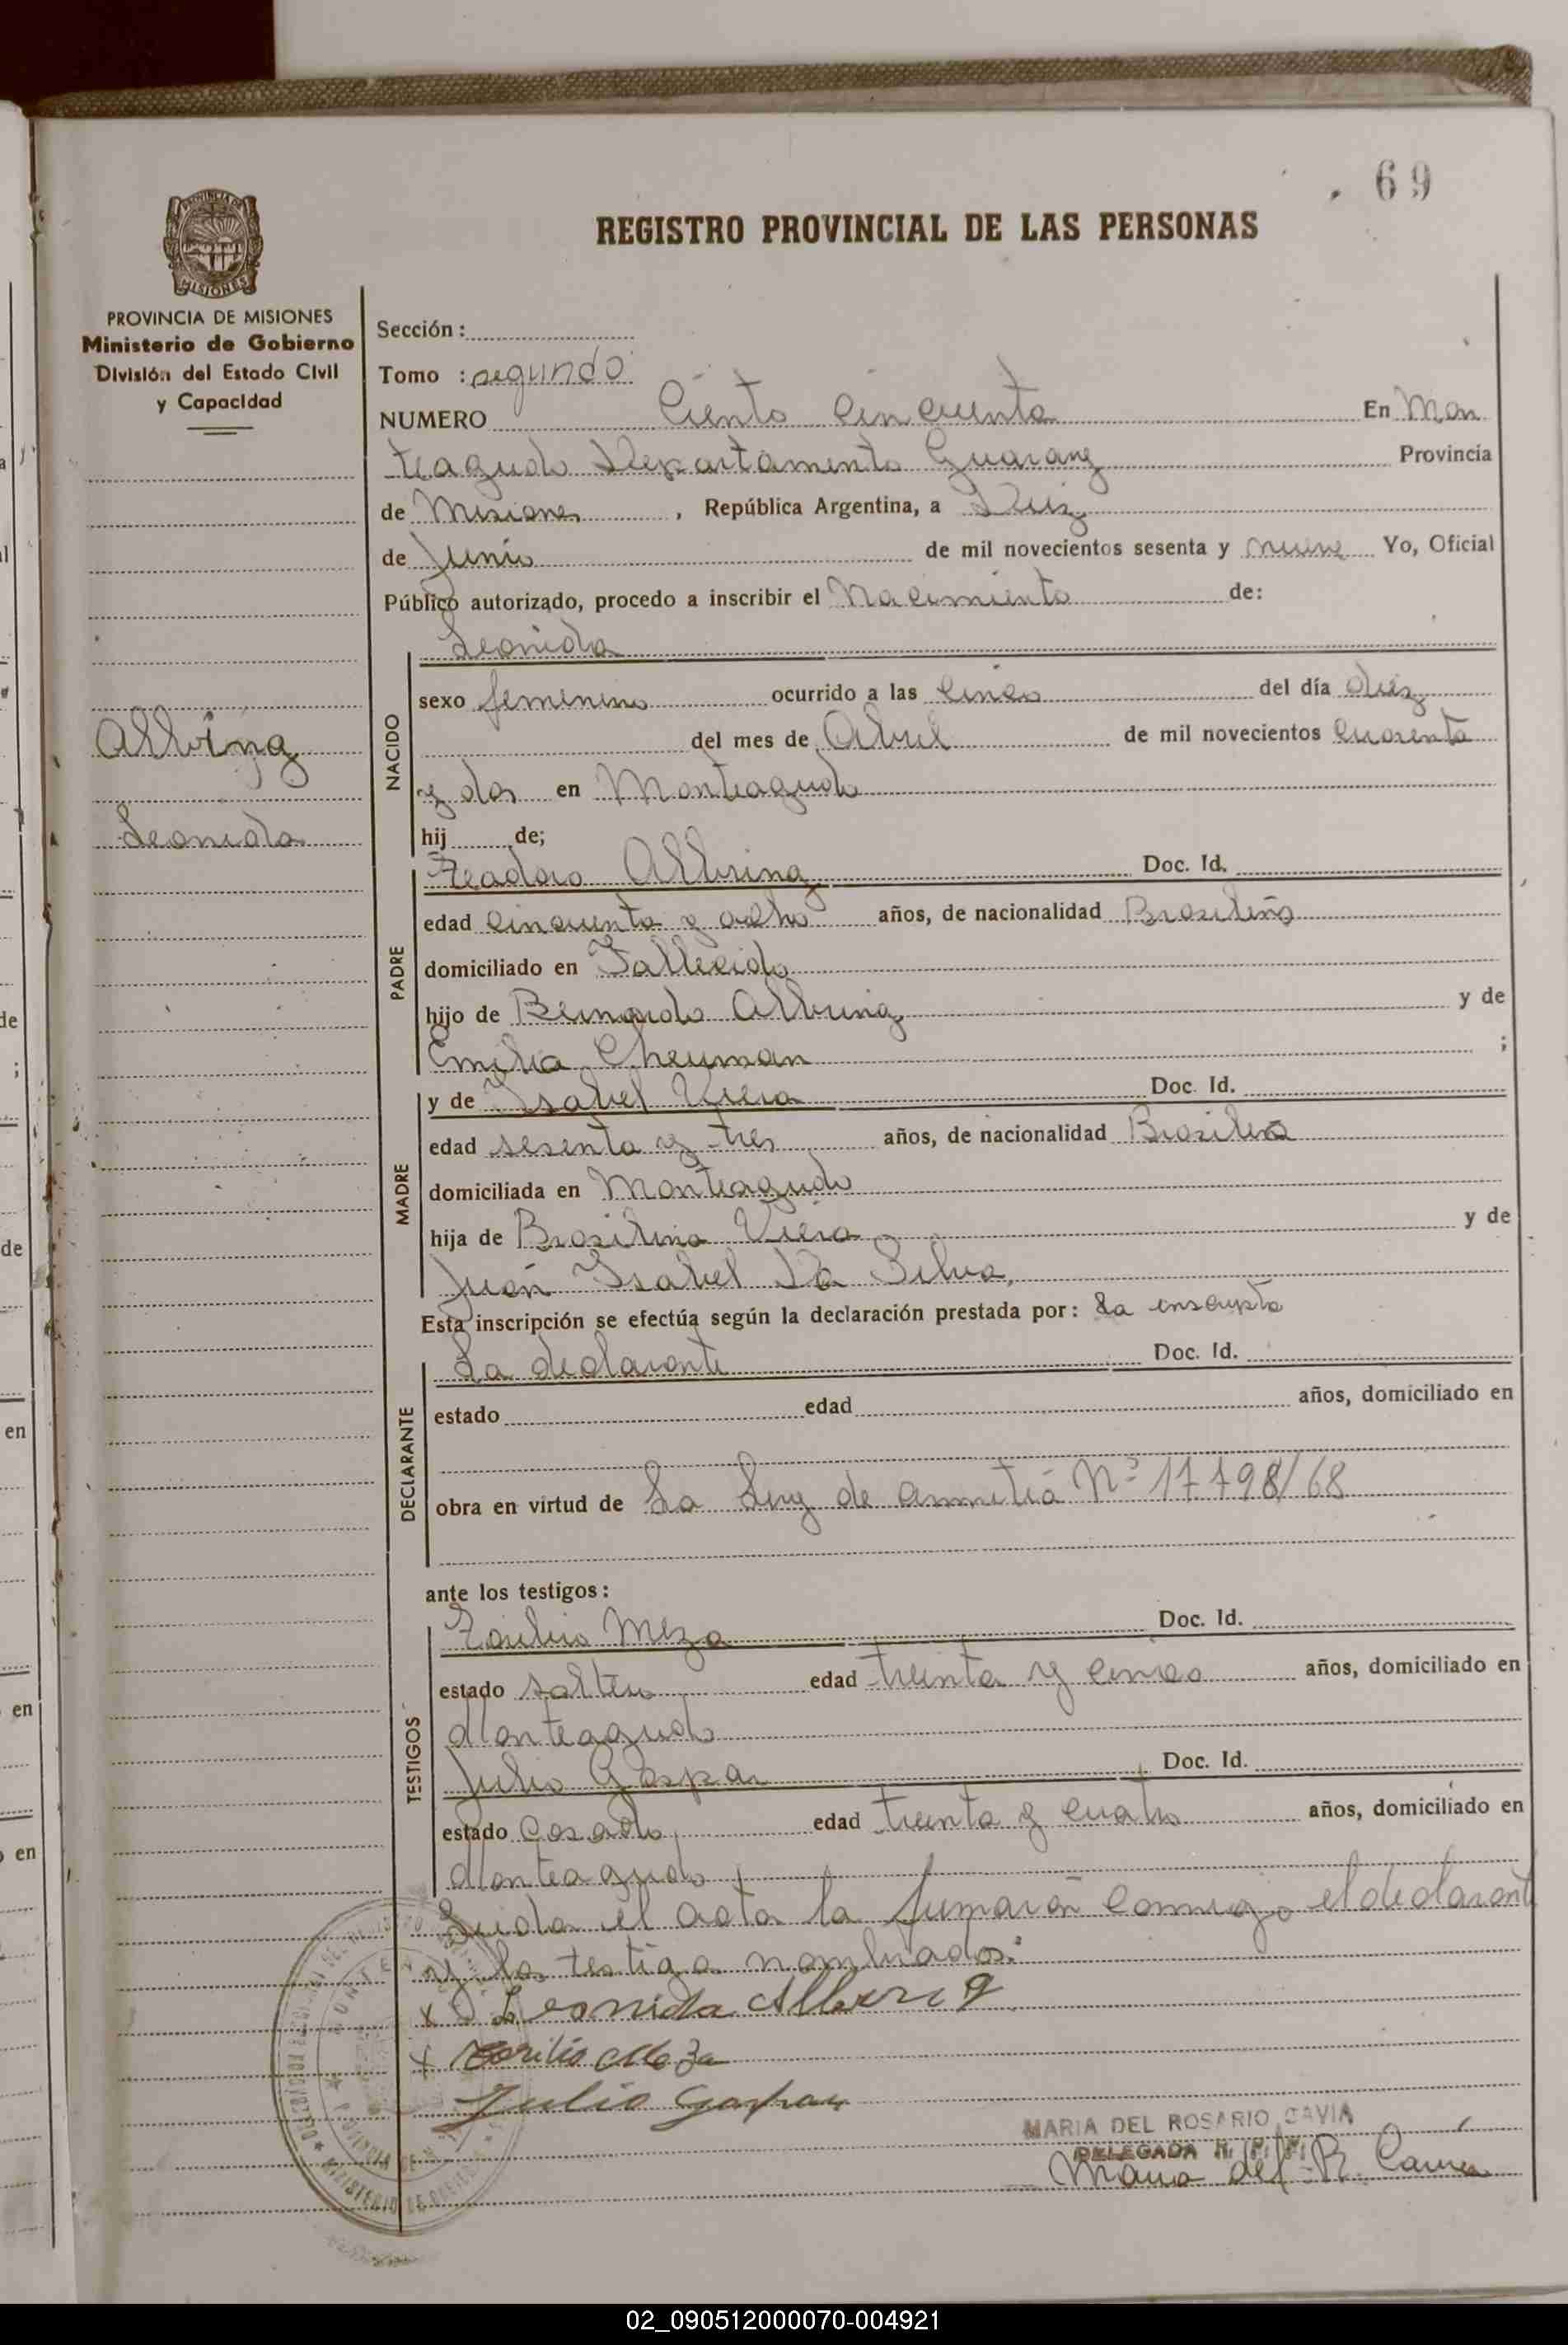 69
REGISTRO PROVINCIAL DE LAS PERSONAS
PROVINCIA DE MISIONES
Ministerio de Gobierno
División del Estado Civil
y Capacidad
Sección:
Tomo : segundo
NUMERO Ciento Cincuenta En Mon
teagudo Departamento Guarany Provincia
de Misiones, República Argentina, a Diez
de Junio de mil novecientos sesenta y nueve Yo, Oficial
Público autorizado, procedo a inscribir el Nacimiento de:
Leonida
NACIDO
sexo femenino ocurrido a las cinco del día diez
Allbring
del mes de Abril de mil novecientos cuarenta
y dos en Monteagudo
Leonida
hij de;
PADRE
Teadoro Allbring Doc. Id.
edad cincuenta y ocho años, de nacionalidad Brasileño
domiciliado en Fallecido
hijo de Bernardo Allbring y de
Emilia Cheuman ;
MADRE
y de Isabel Viera Doc. Id.
edad sesenta y tres años, de nacionalidad Brasilera
domiciliada en Monteagudo
hija de Brasilina Viera y de
Juan Isabel Da Silva,
Esta inscripción se efectúa según la declaración prestada por: La inscripta
DECLARANTE
La declarante Doc. Id.
estado edad años, domiciliado en
obra en virtud de La Ley de amnitiá Nº 17798/68
ante los testigos:
TESTIGOS
Meza Doc. Id.
estado soltero edad treinta y cinco años, domiciliado en
Monteagudo
Julio Gaspar Doc. Id.
estado Casado, edad treinta y cuatro años, domiciliado en
Monteagudo
Leida el acta la firmarán conmigo el declarante
y los testigo nombrados:
x Leonida Allbring
x Meza
Julio Gaspar
MARIA DEL ROSARIO CAVIA
DELEGADA R. P. P.
Maria del R. Cavia
02_090512000070-004921